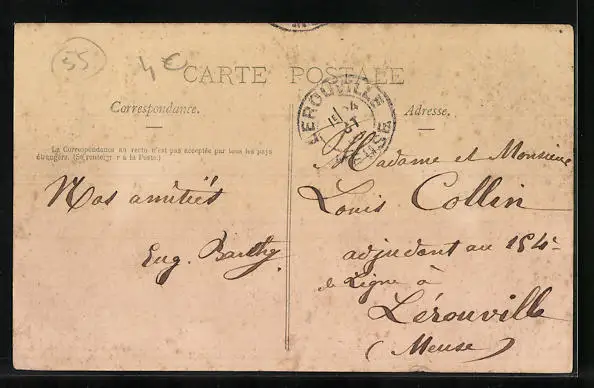 55
4€
CARTE POSTALE
Correspondance.
Adresse.
La Correspondance au recto n'est pas acceptée par tous les pays
étrangers. (Se renseigner à la Poste.)
LEROUVILLE
MEUSE
Nos amitiés
Eug. Barthy.
Madame et Monsieur
Louis Collin
adjudant au 154e
de Ligne à
Lérouville
(Meuse)